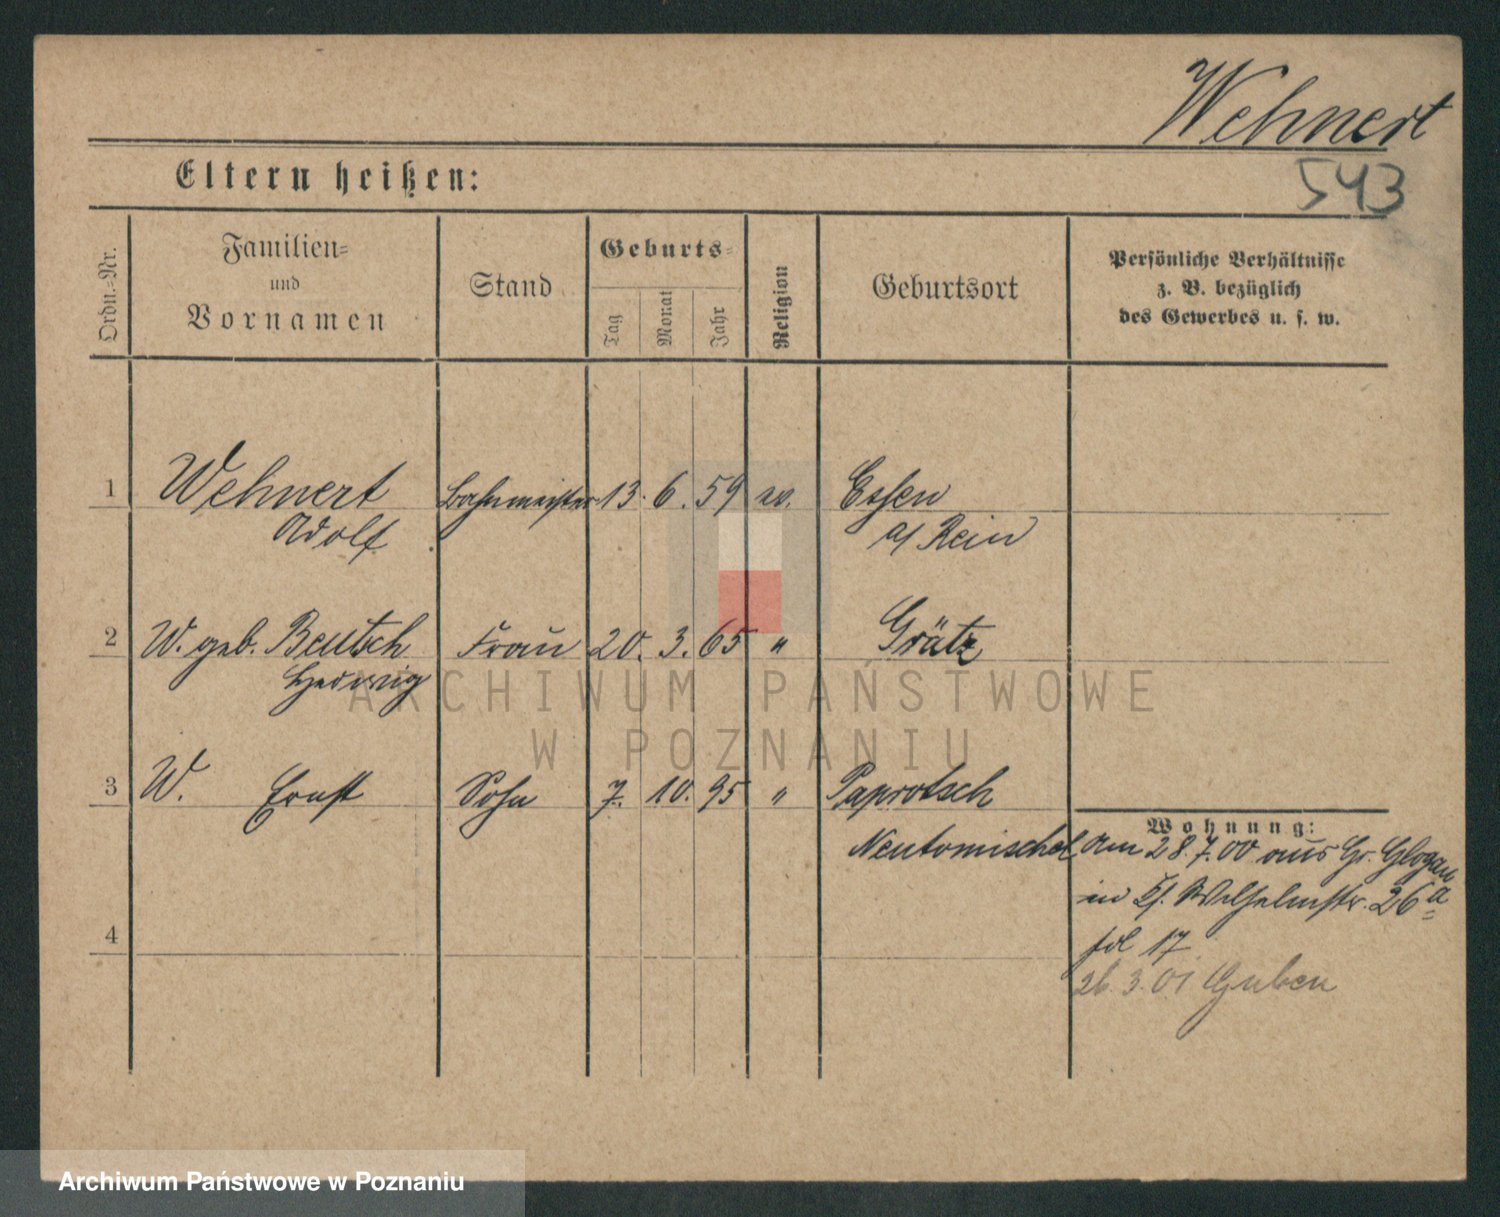 Wehnert
543
Eltern heißen:
Ordn.-Nr.
Familien-
und
Vornamen
Stand
Geburts-
Tag
Monat
Jahr
Religion
Geburtsort
Persönliche Verhältnisse
z. B. bezüglich
des Gewerbes u. s. w.
1 Wehnert Bahnmeister 13. 6. 59 ev. Essen
Adolf a/ Rein
2 W. geb. Beutsch Frau 20. 3. 65 " Grätz
Hedwig
ARCHIWUM PAŃSTWOWE
W POZNANIU
3 W. Ernst Sohn 7. 10. 95 " Paprotsch
Wohnung:
Neutomischel am 28.7.00 aus Gr. Glogau
in Wilhelmstr. 26a
4
17
26.3.01 Guben
Archiwum Państwowe w Poznaniu